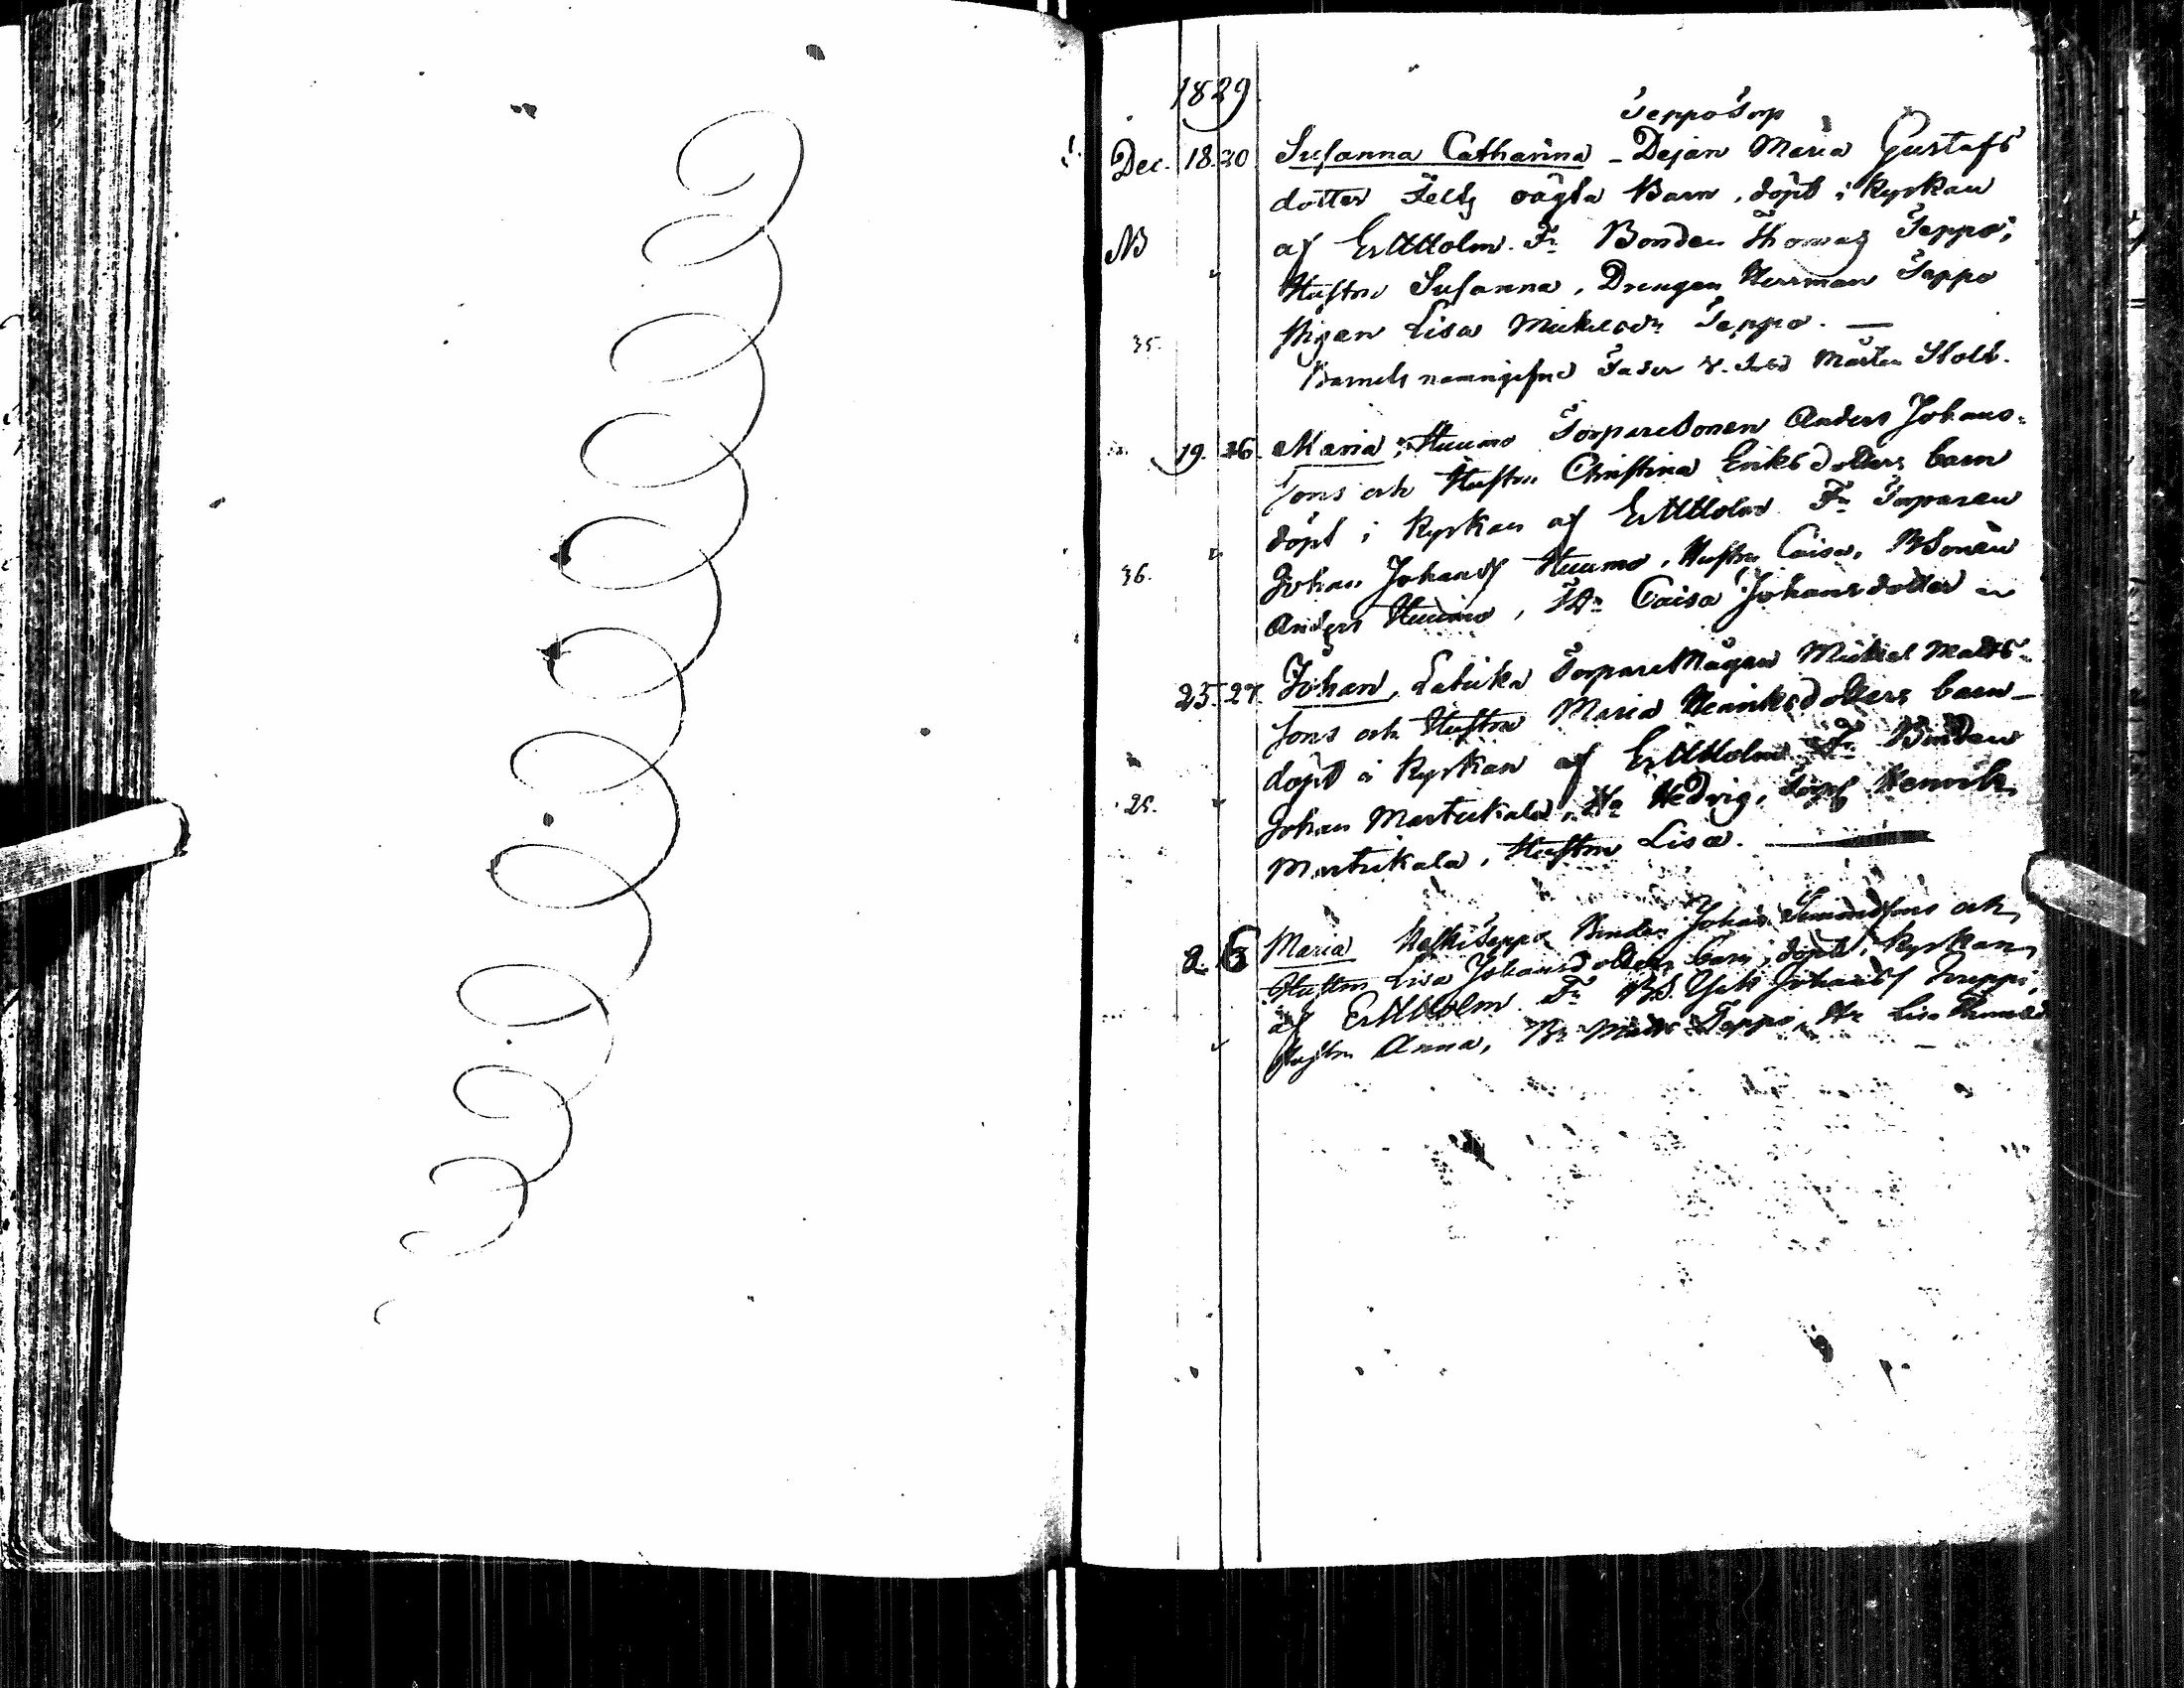 1829
Seppo Torp
Dec. 18. 20 Susanna Catharina - Dejan Maria Gustafs
dotter Feltz oägta Barn, döpt i Kyrkan
NB af Er HHolm. Fr Bonden Thomas Seppo,
Hustru Susanna, Drengen Herrman Seppo
35. Pigan Lisa Mickelsdr Seppo. —
Barnets namngifne Fader Mårten Stolt.
19. 26. Maria, Huumo TorpareSonen Anders Johans-
sons och Hustru Christina Eriksdotters barn
döpt i Kyrkan af Er HHolm. Fr Torparen
36. Johan Johanss Huumo, Hustru Caisa, BSonen
Anders Huumo, Caisa Johansdotter
25. 27. Johan, TorpareMågen Mickel Matts-
sons och Hustru Maria Henriksdotters barn -
döpt i Kyrkan af Er HHolm. Fr Bonden
25. Johan Marttukala, Hu Hedvig, Henrik
Marttukala, Hustru Lisa.
2. 6 Maria Bonden Johan Simonssons och
Hustru Lisa Johansdotters barn, döpt i Kyrkan
af Er HHolm Fr BS. Johanss
Hustru Anna, Br Matts Seppo, Hu Lisa